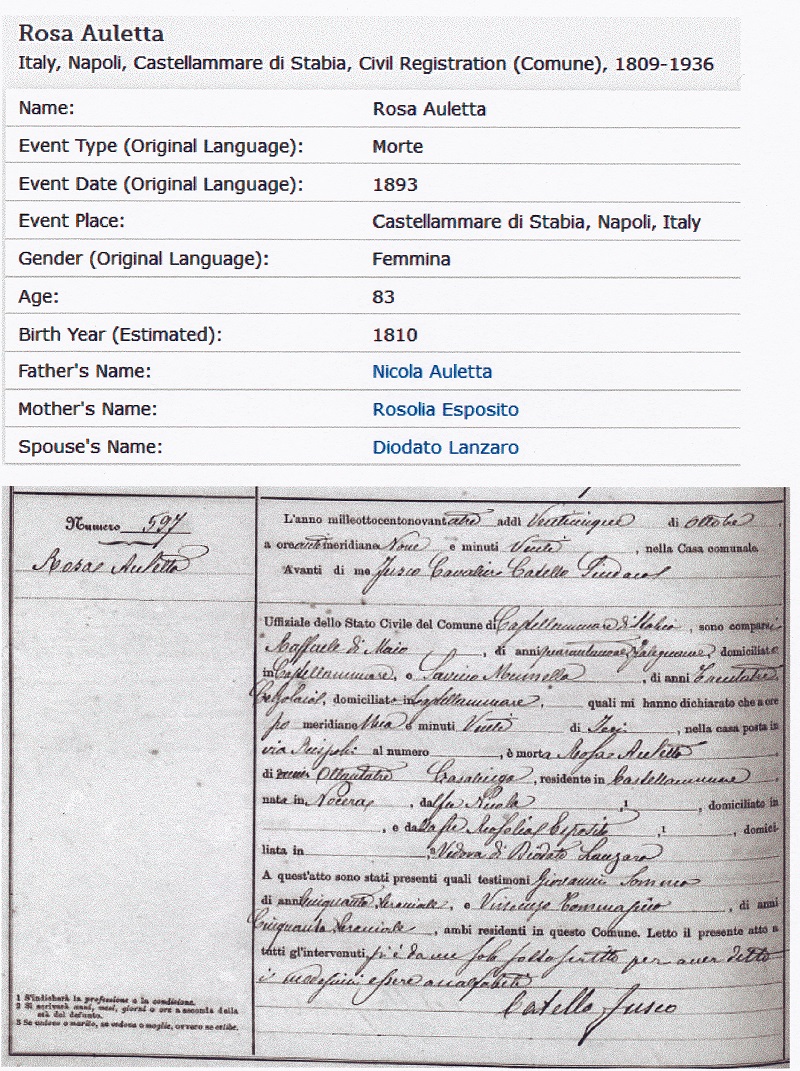 Rosa Auletta
Italy, Napoli, Castellammare di Stabia, Civil Registration (Comune), 1809-1936
Name: Rosa Auletta
Event Type (Original Language): Morte
Event Date (Original Language): 1893
Event Place: Castellammare di Stabia, Napoli, Italy
Gender (Original Language): Femmina
Age: 83
Birth Year (Estimated): 1810
Father's Name: Nicola Auletta
Mother's Name: Rosolia Esposito
Spouse's Name: Diodato Lanzaro
Numero 597
Rosa Auletta
L'anno milleottocentonovantatre addì Venticinque di Ottobre,
a ore antimeridiane Nove e minuti Venti, nella Casa comunale.
Avanti di me Fusco Cavaliere Catello Sindaco
Uffiziale dello Stato Civile del Comune di Castellammare di Stabia, sono comparsi
Raffaele di Maio, di anni quarantanove falegname, domiciliato
in Castellammare, e Savino, di anni Trentatre
domiciliato in Castellammare, quali mi hanno dichiarato che a ore
po meridiane Una e minuti Venti di Ieri, nella casa posta in
via al numero , è morta Rosa Auletta
di anni Ottantatre Casalinga, residente in Castellammare,
nata in Nocera, dal fu Nicola ,1 , domiciliato in
, e dalla fu Rosolia Esposito ,1 , domici-
liata in ,3 Vedova di Diodato Lanzaro
A quest'atto sono stati presenti quali testimoni Giovanni Somma
di anni Cinquanta, e Vincenzo Tommasino, di anni
Cinquanta, ambi residenti in questo Comune. Letto il presente atto a
tutti gl'intervenuti, si è da me solo sottoscritto per aver detto
i medesimi essere analfabeti
Catello Fusco
1 S'indicherà la professione o la condizione.
2 Si scriverà anni, mesi, giorni o ore a seconda della
età del defunto.
3 Se celibe o marito, se vedova o moglie, ovvero se nubile.